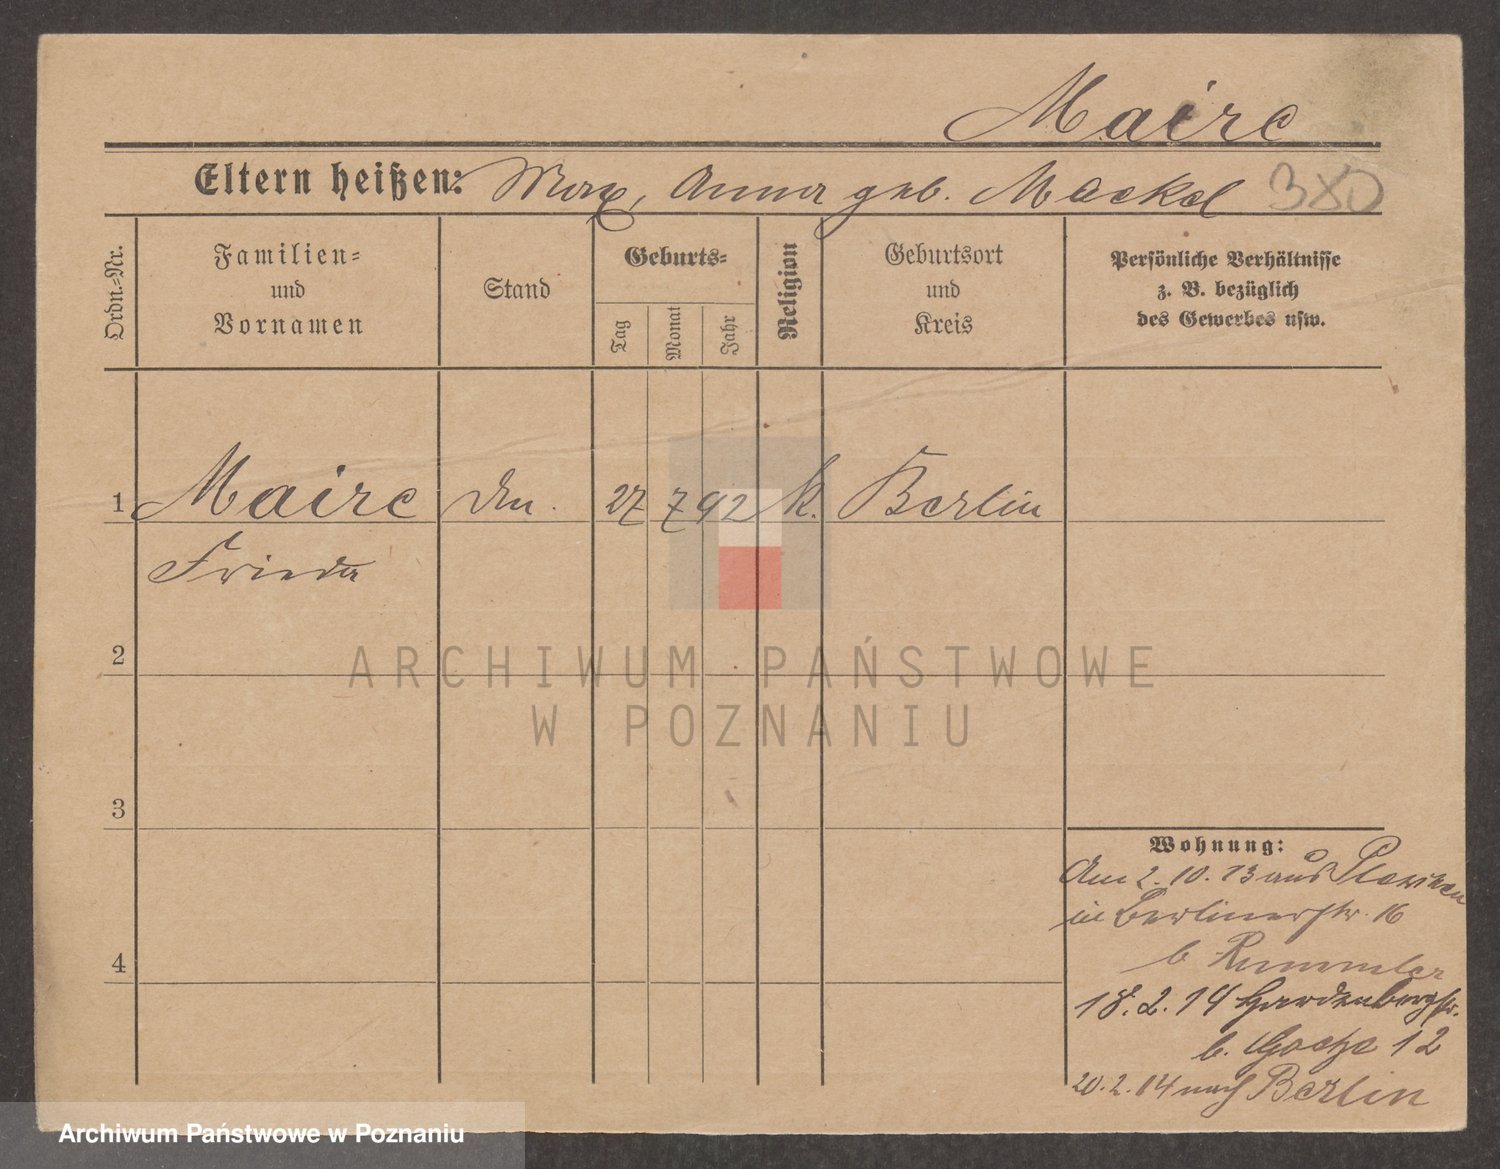 Maire
Eltern heißen: Max, Anna geb. Mackel
380
Ordn.-Nr.
Familien-
und
Vornamen
Stand
Geburts-
Tag
Monat
Jahr
Religion
Geburtsort
und
Kreis
Persönliche Verhältnisse
z. B. bezüglich
des Gewerbes usw.
1 Maire 27 7 92 k. Berlin
Frieda
2
3
4
Wohnung:
Am 2. 10. 13 aus
in Berlinerstr. 16
b Rummler
18. 2. 14 Hardenbergstr.
b. Goetze 12
20. 2. 14 nach Berlin
ARCHIWUM PAŃSTWOWE
W POZNANIU
Archiwum Państwowe w Poznaniu